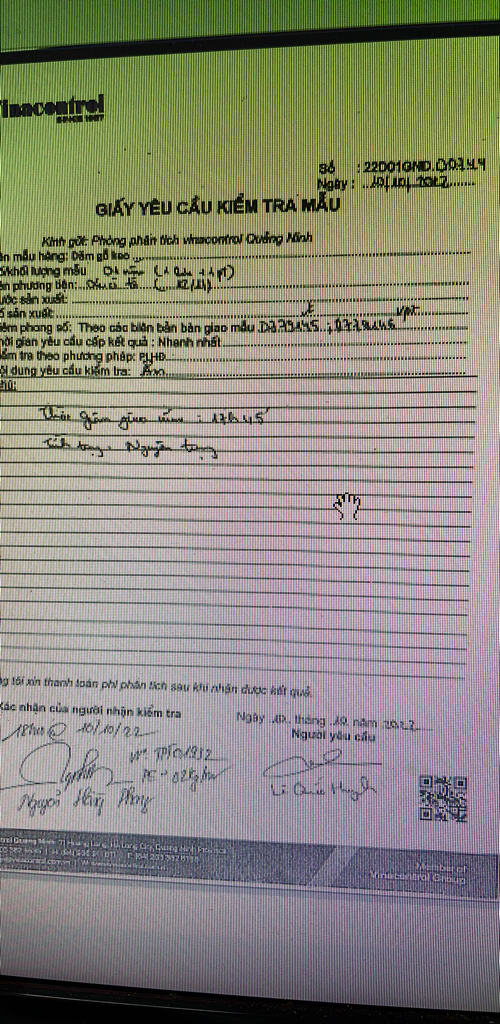 Vinacontrol
SINCE 1957
Số : 22D01GND.00744
Ngày : 10/10/2022
GIẤY YÊU CẦU KIỂM TRA MẪU
Kính gửi: Phòng phân tích vinacontrol Quảng Ninh
ên mẫu hàng: Dăm gỗ keo
khối lượng mẫu 01 mẫu
ên phương tiện:
ước sản xuất:
ố sản xuất:
iêm phong số: Theo các biên bản bàn giao mẫu D779145 ; 0779146
hời gian yêu cầu cấp kết quả : Nhanh nhất
iểm tra theo phương pháp: PLHĐ
ội dung yêu cầu kiểm tra: Ẩm
hú:
Thời gian giao mẫu : 17h45'
Tình trạng : Nguyên trạng
g tôi xin thanh toán phí phân tích sau khi nhận được kết quả.
Xác nhận của người nhận kiểm tra
Ngày 10 tháng 10 năm 2022
Người yêu cầu
18h00 @ 10/10/22
N° TPTO1932
PE - 02kg/mẫu
Nguyễn Hồng Phong
Member of
Vinacontrol Group